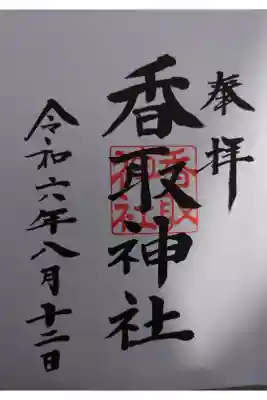 奉拝
香取神社
香取
神社
令和六年八月十二日